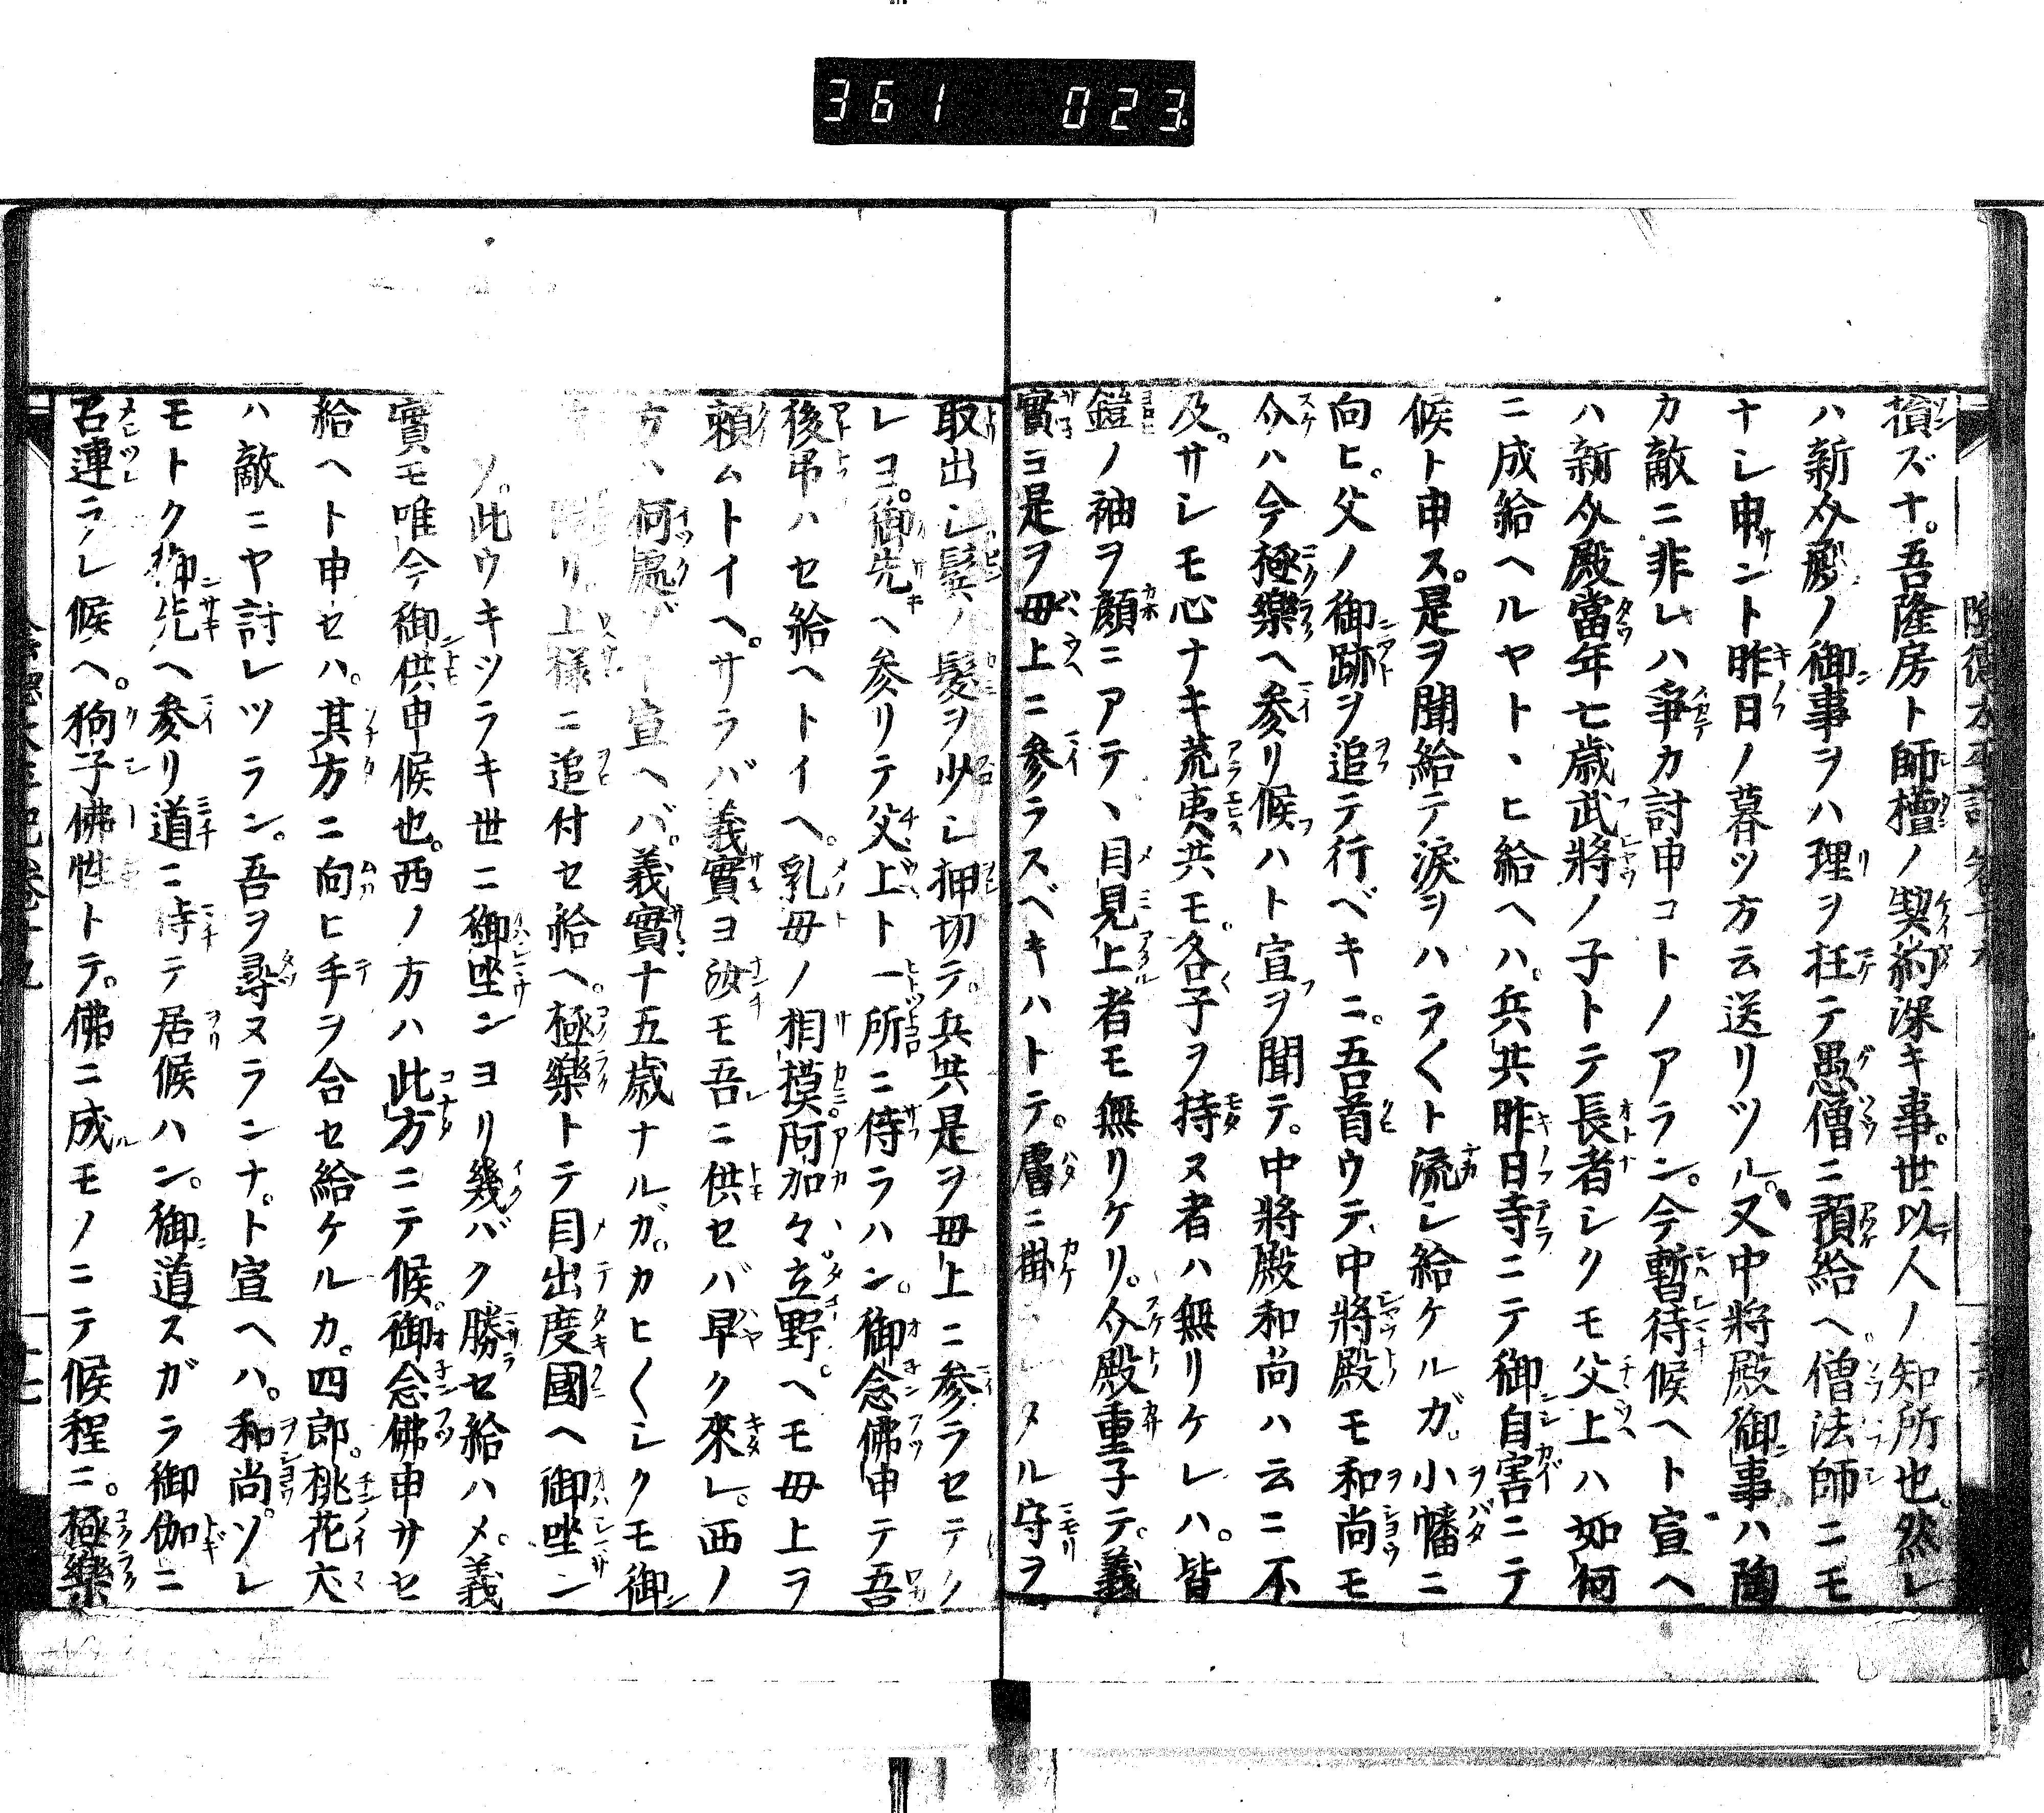 361 023
損ズナ。吾隆房ト師檀ノ契約深キ事。世以人ノ知所也。然レ
ハ新介殿ノ御事ヲハ理ヲ枉テ愚僧ニ預給ヘ。僧法師ニモ
ナレ申サント昨日ノ暮ツ方云送リツル。又中將殿御事ハ陶
カ敵ニ非レハ爭カ討申コトノアラン。今暫待候ヘト宣ヘ
ハ新介殿當年七歳武將ノ子トテ長者シクモ父上ハ如何
ニ成給ヘルヤトヽヒ給ヘハ。兵共昨日寺ニテ御自害ニテ
候ト申ス。是ヲ聞給テ淚ヲハラ〱ト流シ給ケルガ。小幡ニ
向ヒ。父ノ御跡ヲ追テ行ベキニ。吾首ウテ、中將殿モ和尚モ
今ハ今極樂ヘ參リ候ハト宣ヲ聞テ。中將殿和尚ハ云ニ不
及。サレモ心ナキ荒夷共モ。各子ヲ持ヌ者ハ無リケレハ。皆
鎧ノ袖ヲ顔ニアテヽ目見上者モ無リケリ。介殿重子テ。義
實コ是ヲ母上ニ參ラスベキハトテ。膚ニ掛ラレタル守ヲ
取出シ鬂ノ髮ヲ少シ押切テ。兵共是ヲ母上ニ參ラセテノ
レヨ。御先ヘ參リテ父上ト一所ニ侍ラハン。御念佛申テ吾
後弔ハセ給ヘトイヘ。乳母ノ相摸阿加々立野。ヘモ母上ヲ
賴ムトイヘ。サラバ義實ヨ汝モ吾ニ供セバ早ク來レ。西ノ
方ハ何處ゾト宣ヘバ。義實十五歳ナルガ。カヒ〱シクモ御
リ。上樣ニ追付セ給ヘ。極樂トテ目出度國ヘ御坐ン
ソ。此ウキツラキ世ニ御坐ンヨリ幾バク勝セ給ハメ。義
實モ唯今御供申候也。西ノ方ハ此方ニテ候。御念佛申サセ
給ヘト申セハ。其方ニ向ヒ手ヲ合セ給ケルカ。四郎。桃花犬
ハ敵ニヤ討レツラン。吾ヲ尋ヌランナ。ト宣ヘハ。和尚。ソレ
モトク御先ヘ參リ道ニ待テ居候ハン。御道スガラ御伽ニ
召連ラレ候ヘ。狗子佛性トテ。佛ニ成モノニテ候程ニ。極樂